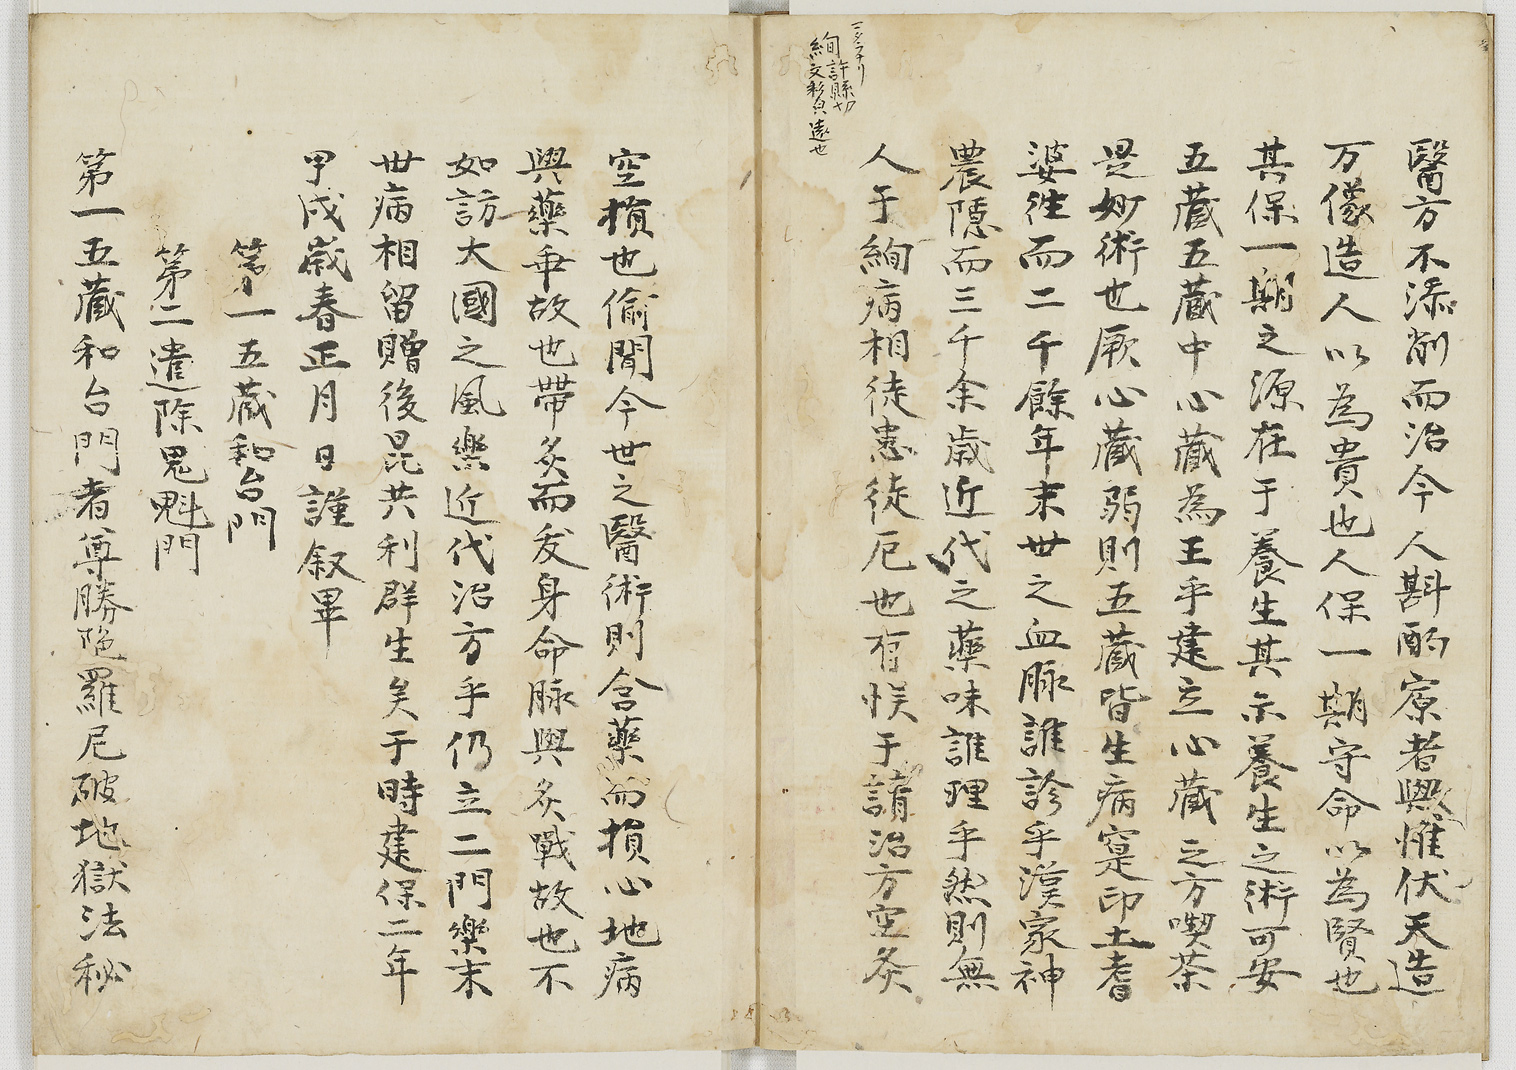 醫方不添削而治今人斟酌寮者與惟伏天造
万像造人以為貴也人保一期守命以為賢也
其保一期之源在于養生其示養生之術可安
五蔵五蔵中心蔵為王乎建立心蔵之方喫茶
是妙術也厥心蔵弱則五蔵皆生病寔印土耆
婆往而二千餘年末世之血脉誰診乎漢家神
農隠而三千余歳近代之薬味誰理乎然則無
人于絢病相徒患徒厄也有悮于請治方空灸
絢許縣切
文彩皃遠也
空損也偷聞今世之醫術則含藥而損心地病
與藥乖故也帶灸而夭身命脉與灸戰故也不
如訪大國之風樂近代治方乎仍立二門樂末
世病相留贈後昆共利群生矣于時建保二年
甲戌歳春正月日謹叙畢
第一五蔵和台門
第二遣除鬼魁門
第一五蔵和台門者尊勝陁羅尼破地獄法秘